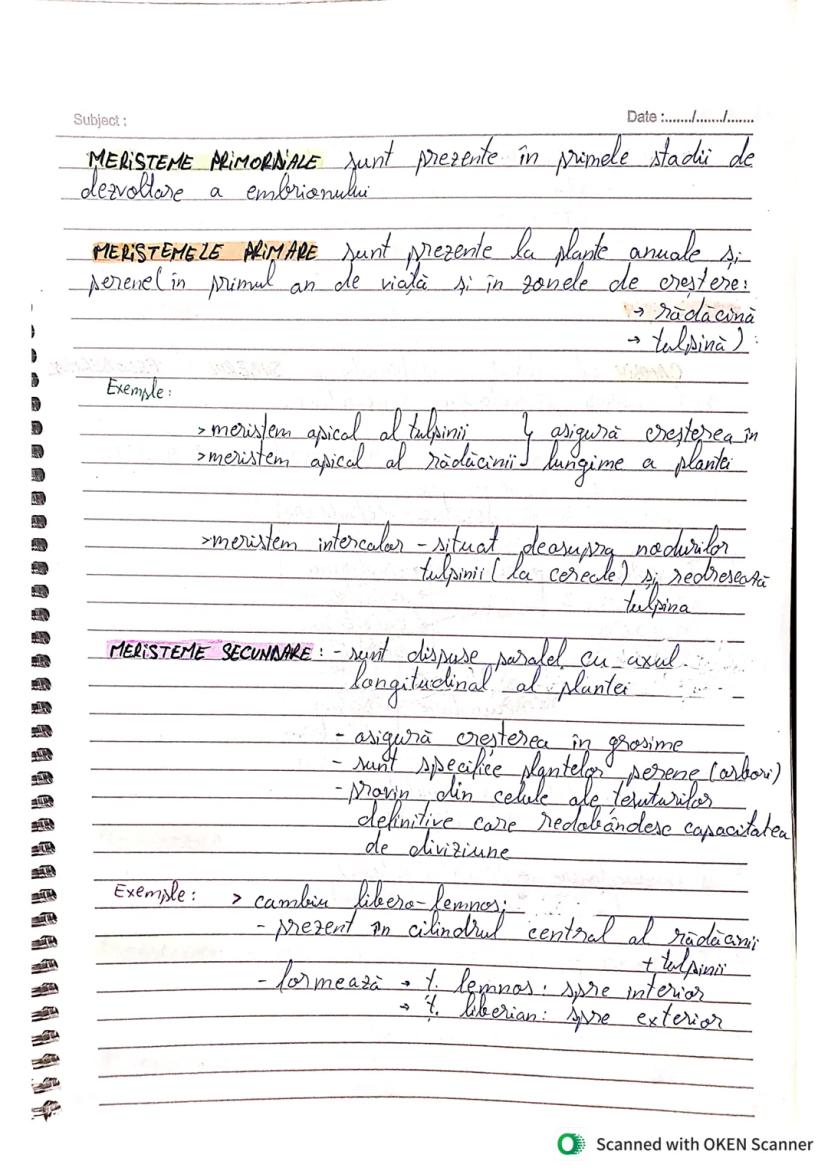 Subject :
Date :......./......./.......
MERISTEME PRIMORDIALE sunt prezente în primele stadii de
dezvoltare a embrionului
MERISTEMELE PRIMARE sunt prezente la plante anuale și
perene (în primul an de viață și în zonele de creștere:
→ rădăcină
→ tulpină) :
Exemple:
> meristem apical al tulpinii } asigură creșterea în
> meristem apical al rădăcinii } lungime a plantei
> meristem intercalar - situat deasupra nodurilor
tulpinii (la cereale) și redresează
tulpina
MERISTEME SECUNDARE : - sunt dispuse paralel cu axul
longitudinal al plantei
- asigură creșterea în grosime
- sunt specifice plantelor perene (arbori)
- provin din celule ale țesuturilor
definitive care redobândesc capacitatea
de diviziune
Exemple: > cambiu libero-lemnos:
- prezent în cilindrul central al rădăcinii
+ tulpinii
- formează → ț. lemnos: spre interior
→ ț. liberian: spre exterior
Scanned with OKEN Scanner